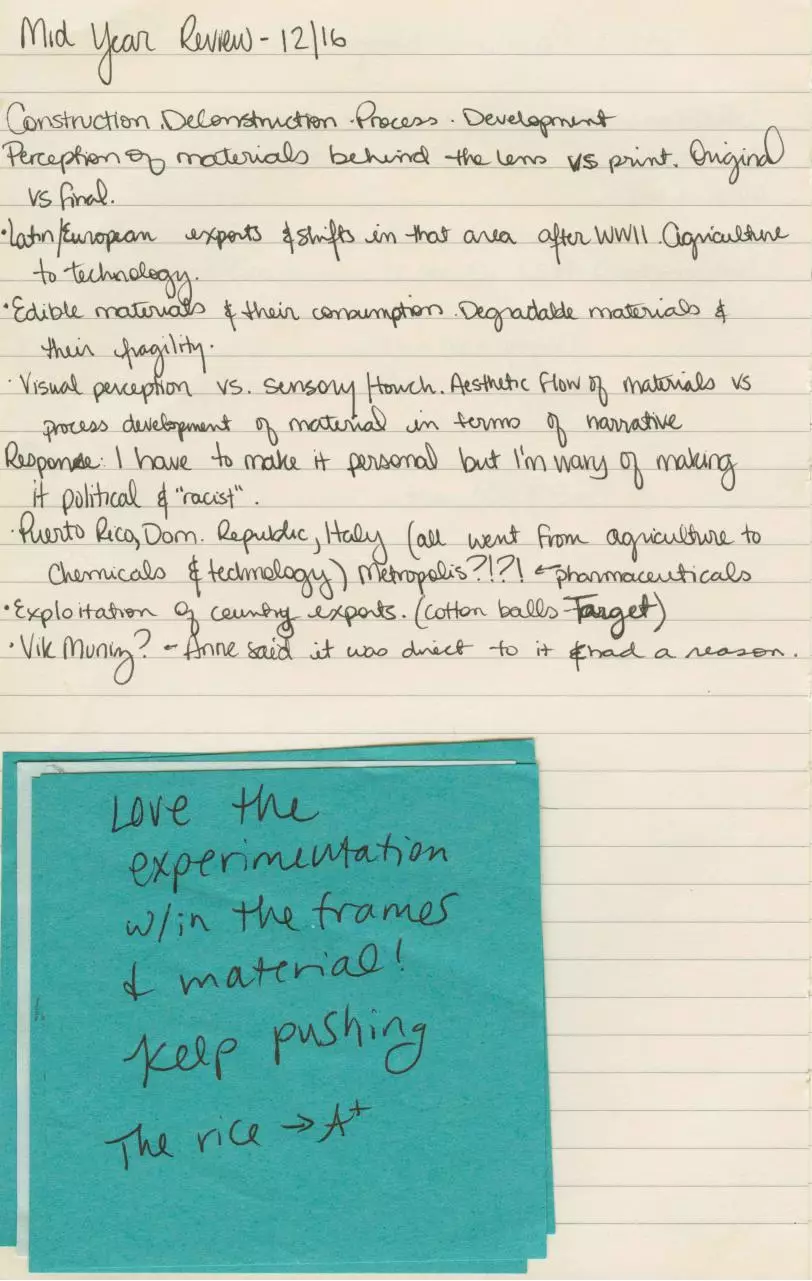 Mid Year Review - 12/16
Construction. Deconstruction. Process. Development
Perception of materials behind the lens vs print. Original
vs final.
• Latin/European exports & shifts in that area after WWII. Agriculture
to technology.
• Edible materials & their consumption. Degradable materials &
their fragility.
• Visual perception vs. sensory/touch. Aesthetic flow of materials vs
process development of material in terms of narrative
Response: I have to make it personal but I'm wary of making
it political & "racist".
• Puerto Rico, Dom. Republic, Italy (all went from agriculture to
Chemicals & technology) Metropolis?!?! ← pharmaceuticals
• Exploitation of country exports. (cotton balls - Target)
• Vik Muniz? - Anne said it was direct to it & had a reason.
Love the
experimentation
w/in the frames
& material!
Keep pushing
The rice → A+